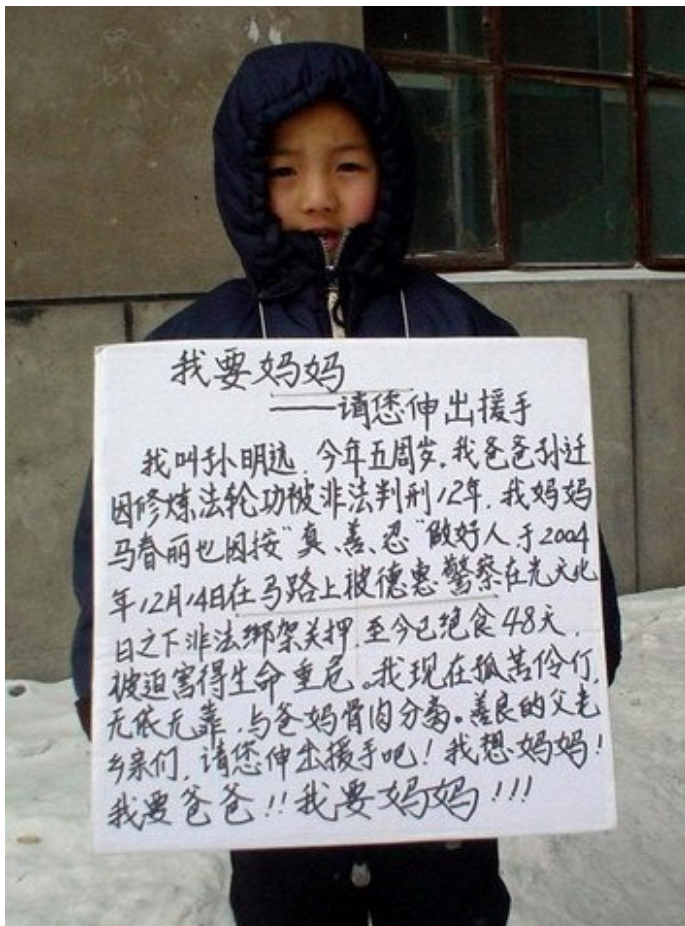 我要妈妈
——请您伸出援手
我叫孙明远.今年五周岁.我爸爸孙迁
因修炼法轮功被非法判刑12年.我妈妈
马春丽也因按“真、善、忍”做好人.于2004
年12月14日在马路上被德惠警察在光天化
日之下非法绑架关押.至今已绝食48天,
被迫害得生命重危。我现在孤苦伶仃,
无依无靠.与爸妈骨肉分离。善良的父老
乡亲们,请您伸出援手吧!我想妈妈!
我要爸爸!!我要妈妈!!!